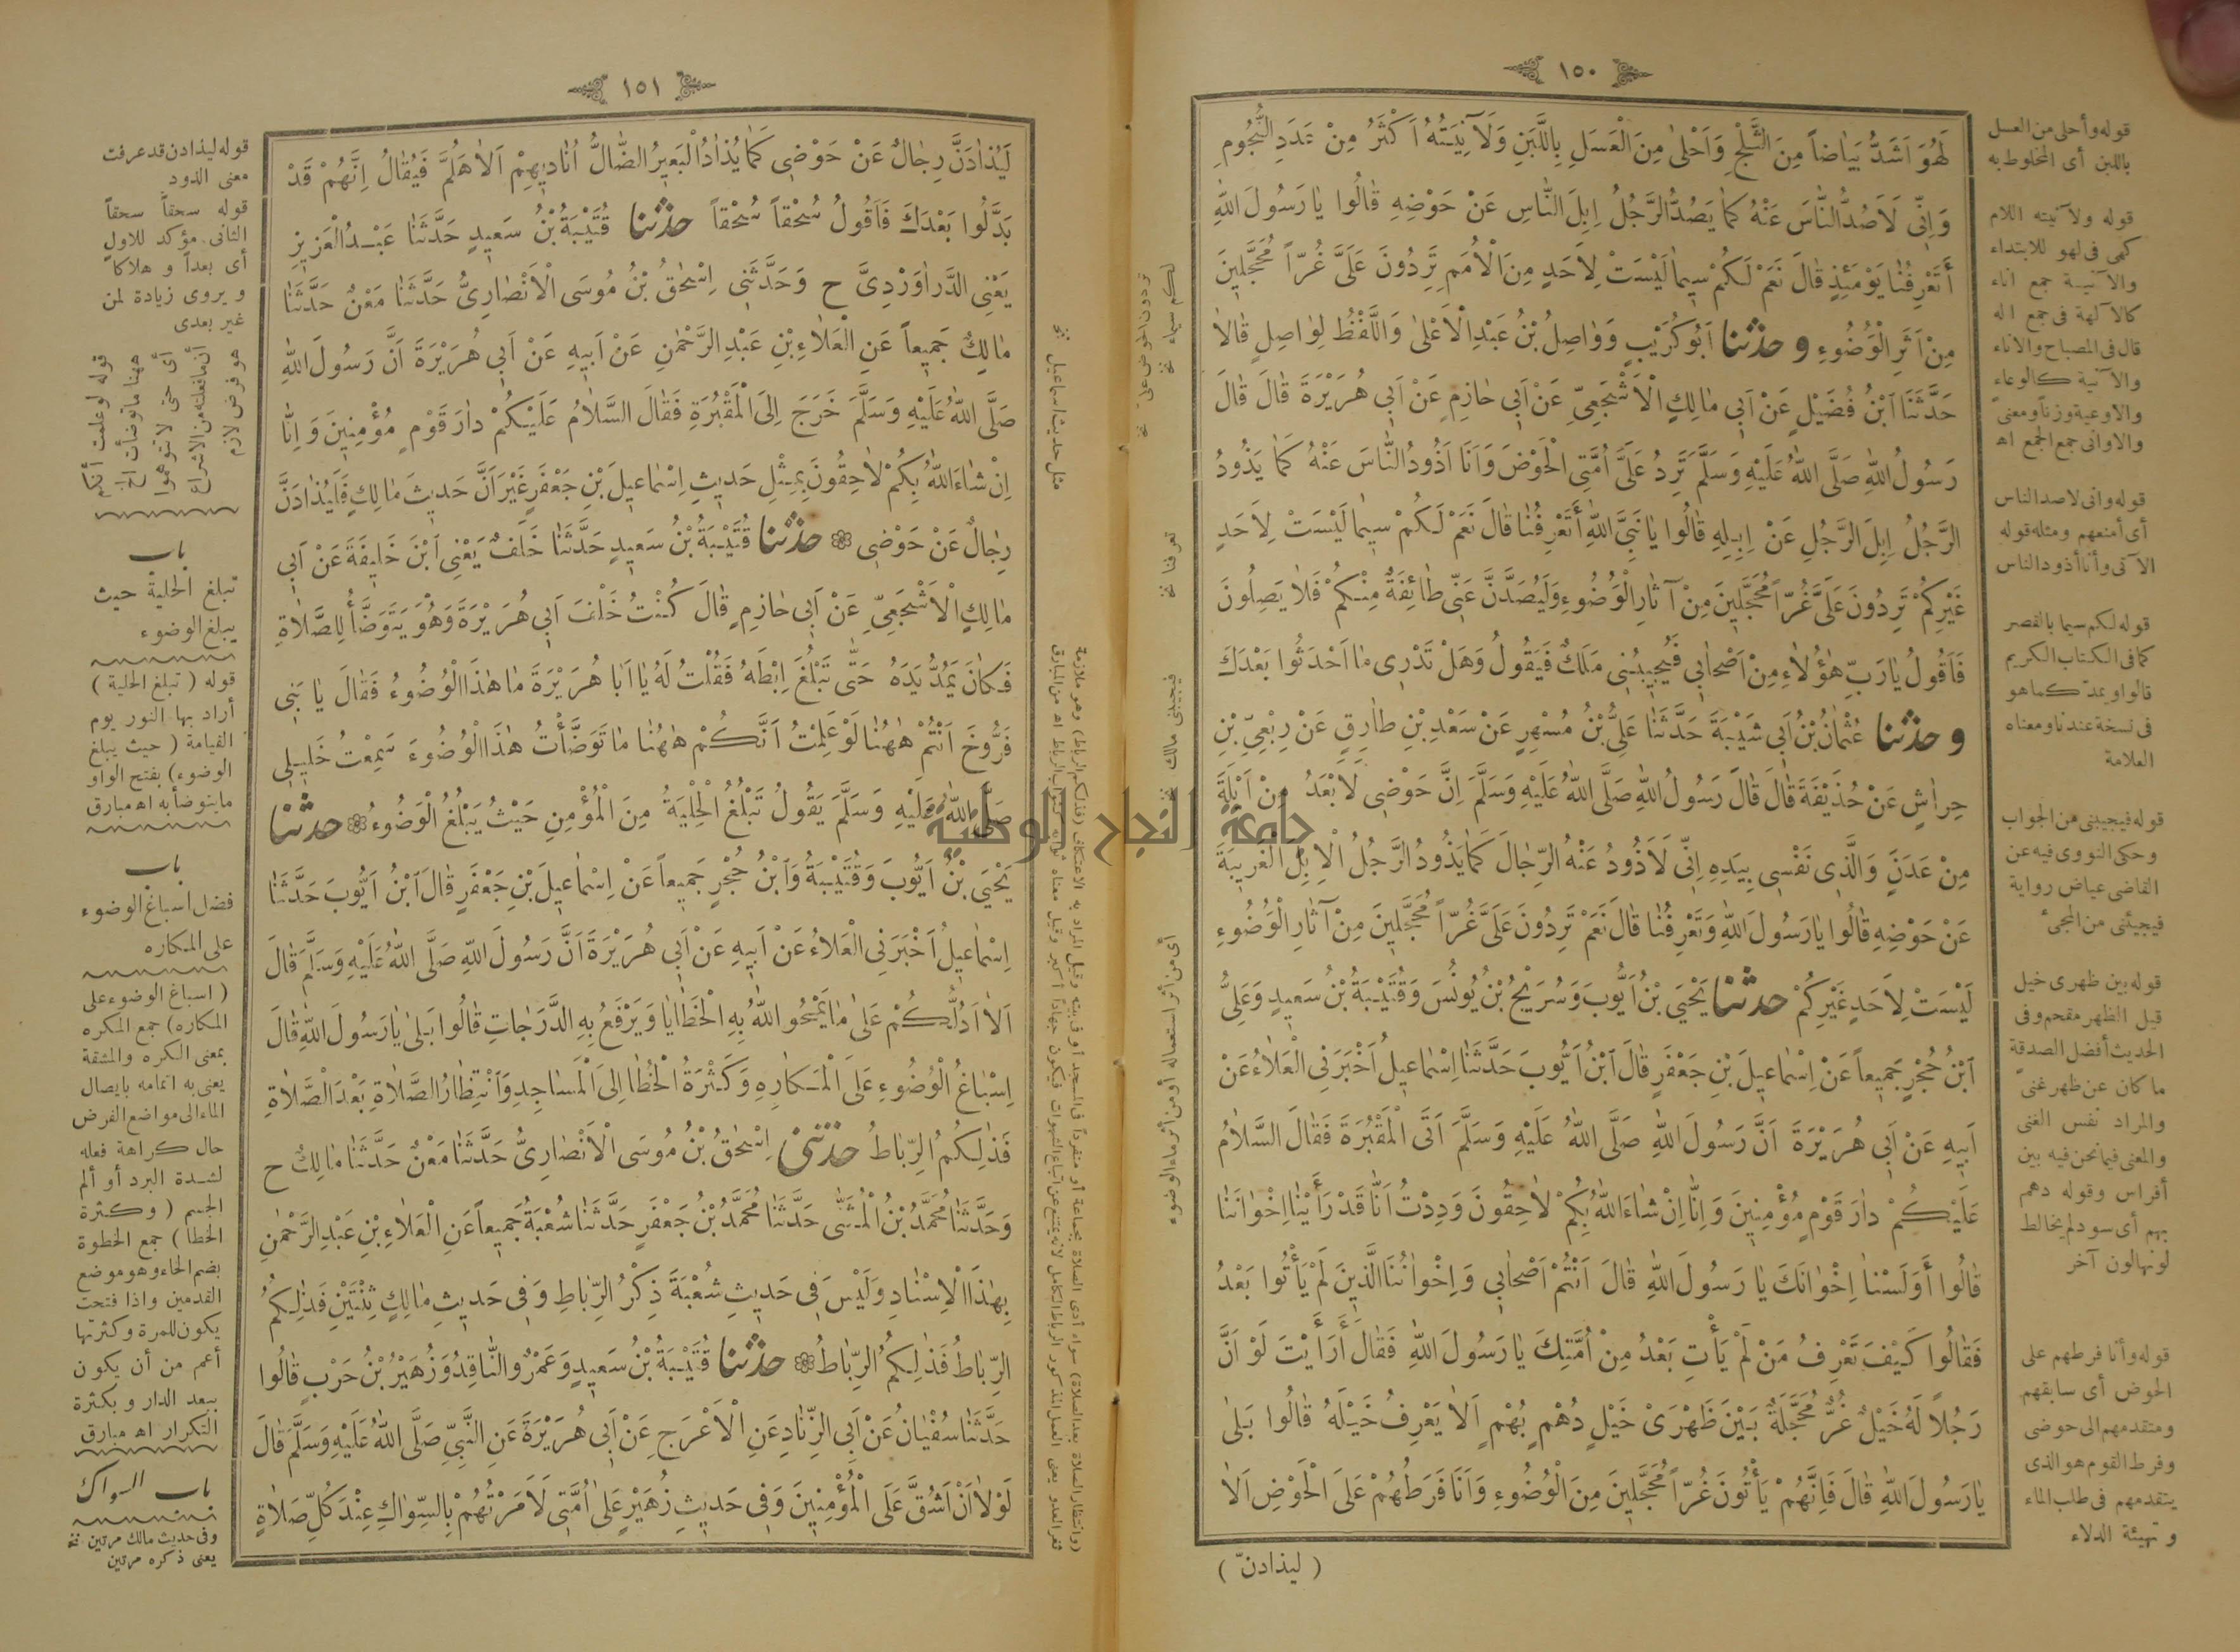 ١٥٠
لَهُوَ اَشَدُّ بَيَاضاً مِنَ الثَّلْجِ وَاَحْلىٰ مِنَ الْعَسَلِ بِاللَّبَنِ وَلَآنِيَتُهُ اَكْثَرُ مِنْ عَدَدِ النُّجُومِ
وَاِنِّى لَاَصُدُّ النَّاسَ عَنْهُ كَمَا يَصُدُّ الرَّجُلُ اِبِلَ النَّاسِ عَنْ حَوْضِهِ قَالُوا يَا رَسُولَ اللهِ
أَتَعْرِفُنَا يَوْمَئِذٍ قَالَ نَعَمْ لَكُمْ سِيمَا لَيْسَتْ لِاَحَدٍ مِنَ الْاُمَمِ تَرِدُونَ عَلَىَّ غُرّاً مُحَجَّلِينَ
مِنْ اَثَرِ الْوُضُوءِ و حدثنا اَبُو كُرَيْبٍ وَوَاصِلُ بْنُ عَبْدِ الْاَعْلىٰ وَاللَّفْظُ لِوَاصِلٍ قَالاَ
حَدَّثَنَا ابْنُ فُضَيْلٍ عَنْ اَبِى مَالِكٍ الْاَشْجَعِىِّ عَنْ اَبِى حَازِمٍ عَنْ اَبِى هُرَيْرَةَ قَالَ قَالَ
رَسُولُ اللهِ صَلَّى اللهُ عَلَيْهِ وَسَلَّمَ تَرِدُ عَلَىَّ اُمَّتِى الْحَوْضَ وَاَنَا اَذُودُ النَّاسَ عَنْهُ كَمَا يَذُودُ
الرَّجُلُ اِبِلَ الرَّجُلِ عَنْ اِبِلِهِ قَالُوا يَا نَبِىَّ اللهِ أَتَعْرِفُنَا قَالَ نَعَمْ لَكُمْ سِيمَا لَيْسَتْ لِاَحَدٍ
غَيْرِكُمْ تَرِدُونَ عَلَىَّ غُرّاً مُحَجَّلِينَ مِنْ آثَارِ الْوُضُوءِ وَلَيُصَدَّنَّ عَنِّى طَائِفَةٌ مِنْكُمْ فَلاَ يَصِلُونَ
فَاَقُولُ يَا رَبِّ هٰؤُلاَءِ مِنْ اَصْحَابِى فَيُجِيبُنِى مَلَكٌ فَيَقُولُ وَهَلْ تَدْرِى مَا اَحْدَثُوا بَعْدَكَ
و حدثنا عُثْمَانُ بْنُ اَبِى شَيْبَةَ حَدَّثَنَا عَلِىُّ بْنُ مُسْهِرٍ عَنْ سَعْدِ بْنِ طَارِقٍ عَنْ رِبْعِىِّ بْنِ
حِرَاشٍ عَنْ حُذَيْفَةَ قَالَ قَالَ رَسُولُ اللهِ صَلَّى اللهُ عَلَيْهِ وَسَلَّمَ اِنَّ حَوْضِى لَاَبْعَدُ مِنْ اَيْلَةَ
مِنْ عَدَنٍ وَالَّذِى نَفْسِى بِيَدِهِ اِنِّى لَاَذُودُ عَنْهُ الرِّجَالَ كَمَا يَذُودُ الرَّجُلُ الْاِبِلَ الْغَرِيبَةَ
عَنْ حَوْضِهِ قَالُوا يَا رَسُولَ اللهِ وَتَعْرِفُنَا قَالَ نَعَمْ تَرِدُونَ عَلَىَّ غُرّاً مُحَجَّلِينَ مِنْ آثَارِ الْوُضُوءِ
لَيْسَتْ لِاَحَدٍ غَيْرِكُمْ حدثنا يَحْيَى بْنُ اَيُّوبَ وَسُرَيْجُ بْنُ يُونُسَ وَقُتَيْبَةُ بْنُ سَعِيدٍ وَعَلِىُّ
ابْنُ حُجْرٍ جَمِيعاً عَنْ اِسْمَاعِيلَ بْنِ جَعْفَرٍ قَالَ ابْنُ اَيُّوبَ حَدَّثَنَا اِسْمَاعِيلُ اَخْبَرَنِى الْعَلاَءُ عَنْ
اَبِيهِ عَنْ اَبِى هُرَيْرَةَ اَنَّ رَسُولَ اللهِ صَلَّى اللهُ عَلَيْهِ وَسَلَّمَ اَتَى الْمَقْبُرَةَ فَقَالَ السَّلاَمُ
عَلَيْكُمْ دَارَ قَوْمٍ مُؤْمِنِينَ وَاِنَّا اِنْ شَاءَ اللهُ بِكُمْ لاَحِقُونَ وَدِدْتُ اَنَّا قَدْ رَأَيْنَا اِخْوَانَنَا
قَالُوا أَوَلَسْنَا اِخْوَانَكَ يَا رَسُولَ اللهِ قَالَ اَنْتُمْ اَصْحَابِى وَاِخْوَانُنَا الَّذِينَ لَمْ يَأْتُوا بَعْدُ
فَقَالُوا كَيْفَ تَعْرِفُ مَنْ لَمْ يَأْتِ بَعْدُ مِنْ اُمَّتِكَ يَا رَسُولَ اللهِ فَقَالَ أَرَأَيْتَ لَوْ اَنَّ
رَجُلاً لَهُ خَيْلٌ غُرٌّ مُحَجَّلَةٌ بَيْنَ ظَهْرَىْ خَيْلٍ دُهْمٍ بُهْمٍ اَلاَ يَعْرِفُ خَيْلَهُ قَالُوا بَلىٰ
يَا رَسُولَ اللهِ قَالَ فَاِنَّهُمْ يَأْتُونَ غُرّاً مُحَجَّلِينَ مِنَ الْوُضُوءِ وَاَنَا فَرَطُهُمْ عَلَى الْحَوْضِ اَلاَ
( ليذادنّ )
قوله وأحلى من العسل
باللبن أى المخلوط به
قوله ولآنيته اللام
كهى فى لهو للابتداء
والآنية جمع اناء
كالآلهة فى جمع اله
قال فى المصباح والاناء
والآنية كالوعاء
والاوعية وزناً ومعنى
والاوانى جمع الجمع اه
قوله وانى لاصد الناس
أى أمنعهم ومثله قوله
الآتى وأنا أذود الناس
قوله لكم سيما بالقصر
كما فى الكتاب الكريم
قالوا ويمدّ كما هو
فى نسخة عندنا ومعناه
العلامة
قوله فيجيبنى من الجواب
وحكى النووى فيه عن
القاضى عياض رواية
فيجيئنى من المجئ
قوله بين ظهرى خيل
قيل الظهر مقحم وفى
الحديث أفضل الصدقة
ما كان عن ظهر غنى
والمراد نفس الغنى
والمعنى فيما نحن فيه بين
أفراس وقوله دهم
بهم أى سود لم يخالط
لونها لون آخر
قوله وأنا فرطهم على
الحوض أى سابقهم
ومتقدمهم الى حوضى
وفرط القوم هو الذى
يتقدمهم فى طلب الماء
وتهيئة الدلاء
لكم سيماء نخ
تردون الحوض على نخ
تعرفنا نخ
فيجيبنى مالك نخ
أى من أثر استعماله أو من أثر ماء الوضوء
١٥١
لَيُذَادَنَّ رِجَالٌ عَنْ حَوْضِى كَمَا يُذَادُ الْبَعِيرُ الضَّالُّ اُنَادِيهِمْ اَلاَ هَلُمَّ فَيُقَالُ اِنَّهُمْ قَدْ
بَدَّلُوا بَعْدَكَ فَاَقُولُ سُحْقاً سُحْقاً حدثنا قُتَيْبَةُ بْنُ سَعِيدٍ حَدَّثَنَا عَبْدُ الْعَزِيزِ
يَعْنِى الدَّرَاوَرْدِىَّ ح وَحَدَّثَنِى اِسْحٰقُ بْنُ مُوسَى الْاَنْصَارِىُّ حَدَّثَنَا مَعْنٌ حَدَّثَنَا
مَالِكٌ جَمِيعاً عَنِ الْعَلاَءِ بْنِ عَبْدِ الرَّحْمٰنِ عَنْ اَبِيهِ عَنْ اَبِى هُرَيْرَةَ اَنَّ رَسُولَ اللهِ
صَلَّى اللهُ عَلَيْهِ وَسَلَّمَ خَرَجَ اِلَى الْمَقْبُرَةِ فَقَالَ السَّلاَمُ عَلَيْكُمْ دَارَ قَوْمٍ مُؤْمِنِينَ وَاِنَّا
اِنْ شَاءَ اللهُ بِكُمْ لاَحِقُونَ بِمِثْلِ حَدِيثِ اِسْمَاعِيلَ بْنِ جَعْفَرٍ غَيْرَ اَنَّ حَدِيثَ مَالِكٍ فَلَيُذَادَنَّ
رِجَالٌ عَنْ حَوْضِى ۞ حدثنا قُتَيْبَةُ بْنُ سَعِيدٍ حَدَّثَنَا خَلَفٌ يَعْنِى ابْنَ خَلِيفَةَ عَنْ اَبِى
مَالِكٍ الْاَشْجَعِىِّ عَنْ اَبِى حَازِمٍ قَالَ كُنْتُ خَلْفَ اَبِى هُرَيْرَةَ وَهُوَ يَتَوَضَّأُ لِلصَّلاَةِ
فَكَانَ يَمُدُّ يَدَهُ حَتّٰى تَبْلُغَ اِبْطَهُ فَقُلْتُ لَهُ يَا اَبَا هُرَيْرَةَ مَا هٰذَا الْوُضُوءُ فَقَالَ يَا بَنِى
فَرُّوخَ اَنْتُمْ هٰهُنَا لَوْ عَلِمْتُ اَنَّكُمْ هٰهُنَا مَا تَوَضَّأْتُ هٰذَا الْوُضُوءَ سَمِعْتُ خَلِيلِى
صَلَّى اللهُ عَلَيْهِ وَسَلَّمَ يَقُولُ تَبْلُغُ الْحِلْيَةُ مِنَ الْمُؤْمِنِ حَيْثُ يَبْلُغُ الْوَضُوءُ ۞ حدثنا
يَحْيَى بْنُ اَيُّوبَ وَقُتَيْبَةُ وَابْنُ حُجْرٍ جَمِيعاً عَنْ اِسْمَاعِيلَ بْنِ جَعْفَرٍ قَالَ ابْنُ اَيُّوبَ حَدَّثَنَا
اِسْمَاعِيلُ اَخْبَرَنِى الْعَلاَءُ عَنْ اَبِيهِ عَنْ اَبِى هُرَيْرَةَ اَنَّ رَسُولَ اللهِ صَلَّى اللهُ عَلَيْهِ وَسَلَّمَ قَالَ
اَلاَ اَدُلُّكُمْ عَلىٰ مَا يَمْحُو اللهُ بِهِ الْخَطَايَا وَيَرْفَعُ بِهِ الدَّرَجَاتِ قَالُوا بَلىٰ يَا رَسُولَ اللهِ قَالَ
اِسْبَاغُ الْوُضُوءِ عَلَى الْمَكَارِهِ وَكَثْرَةُ الْخُطَا اِلَى الْمَسَاجِدِ وَانْتِظَارُ الصَّلاَةِ بَعْدَ الصَّلاَةِ
فَذٰلِكُمُ الرِّبَاطُ حدثنى اِسْحٰقُ بْنُ مُوسَى الْاَنْصَارِىُّ حَدَّثَنَا مَعْنٌ حَدَّثَنَا مَالِكٌ ح
وَحَدَّثَنَا مُحَمَّدُ بْنُ الْمُثَنّٰى حَدَّثَنَا مُحَمَّدُ بْنُ جَعْفَرٍ حَدَّثَنَا شُعْبَةُ جَمِيعاً عَنِ الْعَلاَءِ بْنِ عَبْدِ الرَّحْمٰنِ
بِهٰذَا الْاِسْنَادِ وَلَيْسَ فِى حَدِيثِ شُعْبَةَ ذِكْرُ الرِّبَاطِ وَفِى حَدِيثِ مَالِكٍ ثِنْتَيْنِ فَذٰلِكُمُ
الرِّبَاطُ فَذٰلِكُمُ الرِّبَاطُ ۞ حدثنا قُتَيْبَةُ بْنُ سَعِيدٍ وَعَمْرٌو النَّاقِدُ وَزُهَيْرُ بْنُ حَرْبٍ قَالُوا
حَدَّثَنَا سُفْيَانُ عَنْ اَبِى الزِّنَادِ عَنِ الْاَعْرَجِ عَنْ اَبِى هُرَيْرَةَ عَنِ النَّبِىِّ صَلَّى اللهُ عَلَيْهِ وَسَلَّمَ قَالَ
لَوْلاَ اَنْ اَشُقَّ عَلَى الْمُؤْمِنِينَ وَفِى حَدِيثِ زُهَيْرٍ عَلىٰ اُمَّتِى لَاَمَرْتُهُمْ بِالسِّوَاكِ عِنْدَ كُلِّ صَلاَةٍ
قوله ليذادن قد عرفت
معنى الذود
قوله سحقاً سحقاً
الثانى مؤكد للاول
أى بعداً و هلاكا
ويروى زيادة لمن
غير بعدى
قوله لو علمت أنكم
ههنا ما توضأت الخ
أى حتى لا تتوهموا
أن ما فعلته من الاشراع
هو فرض لازم
باب
تبلغ الحلية حيث
يبلغ الوضوء
قوله ( تبلغ الحلية )
أراد بها النور يوم
القيامة ( حيث يبلغ
الوضوء ) بفتح الواو
ما يتوضأ به اه مبارق
باب
فضل اسباغ الوضوء
على المكاره
( اسباغ الوضوء على
المكاره ) جمع المكره
بمعنى الكره والمشقة
يعنى به اتمامه بايصال
الماء الى مواضع الفرض
حال كراهة فعله
لشدة البرد أو ألم
الجسم ( وكثرة
الخطا ) جمع الخطوة
بضم الخاء وهو موضع
القدمين واذا فتحت
يكون للمرة وكثرتها
أعم من أن يكون
ببعد الدار وبكثرة
التكرار اه مبارق
باب السواك
وفى حديث مالك مرتين نخ
يعنى ذكره مرتين
مثل حديث اسماعيل نخ
( وانتظار الصلاة بعد الصلاة ) سواء أدى الصلاة بجماعة أو منفرداً فى المسجد أو فى بيته وقيل المراد به الاعتكاف ( فذلكم الرباط ) وهو ملازمة
ثغر العدو يعنى العمل المذكور الرباط الكامل لانه يمنع عن اتباع الشهوات فيكون جهاداً أكبر وقيل معناه ثوابه كثواب الرباط اه من المبارق
جامعة النجاح الوطنية